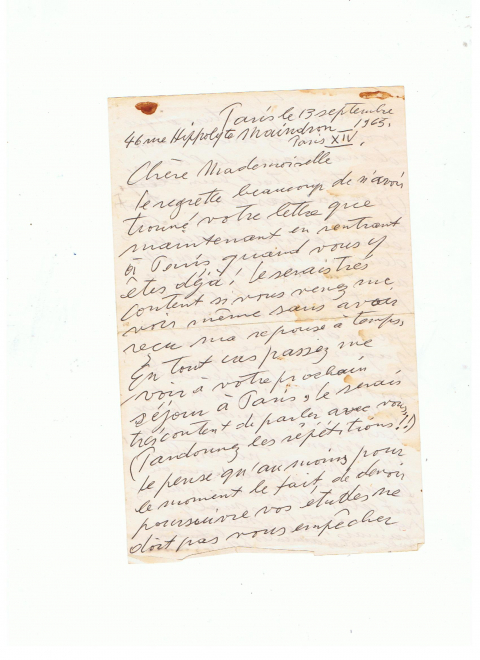 Paris le 13 septembre
1965.
46 rue Hippolyte Maindron
Paris XIV.
Chère Mademoiselle
Je regrette beaucoup de n'avoir
trouvé votre lettre que
maintenant en rentrant
à Paris quand vous y
êtes déjà! Je serais très
content si vous venez me
voir même sans avoir
reçu ma reponse à temps.
En tout cas passez me
voir à votre prochain
séjour à Paris, Je serais
très content de parler avec vous,
(Pardonnez les répétitions!!)
Je pense qu'au moins pour
le moment le fait de devoir
poursuivre vos etudes ne
doit pas vous empêcher